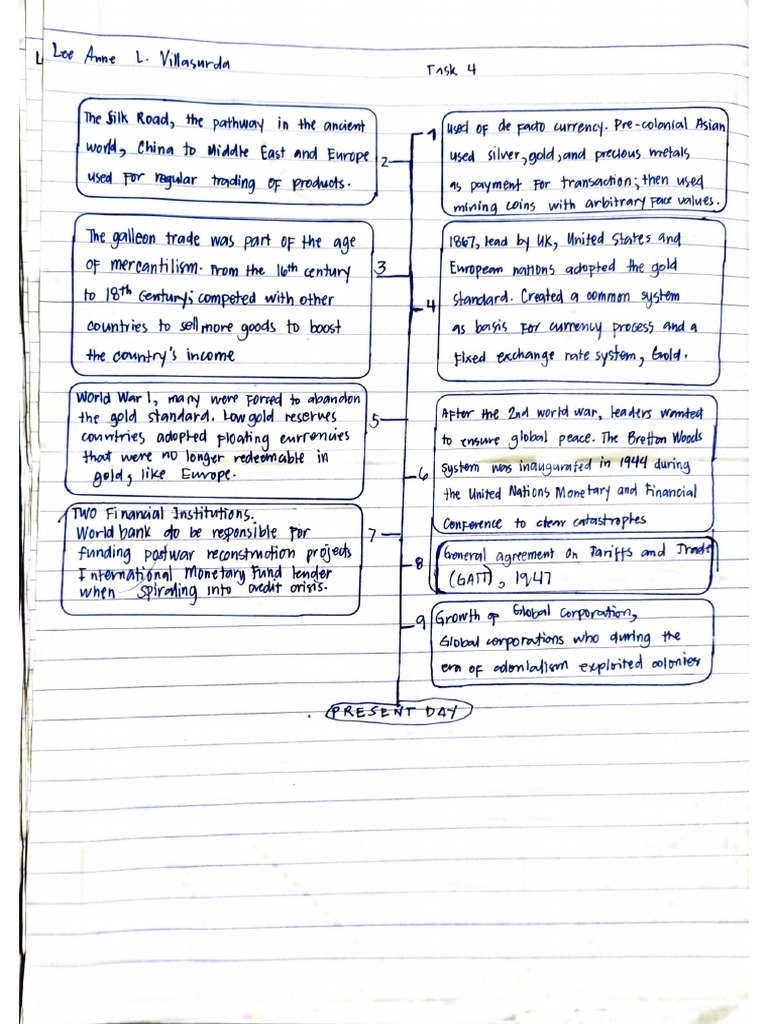 Lee Anne L. Villasurda
Task 4
1
Used of de facto currency. Pre-colonial Asian
used silver, gold, and precious metals
as payment for transaction; then used
mining coins with arbitrary face values.
2
The Silk Road, the pathway in the ancient
world, China to Middle East and Europe
used for regular trading of products.
3
The galleon trade was part of the age
of mercantilism. From the 16th century
to 18th century; competed with other
countries to sell more goods to boost
the country's income
4
1867, lead by UK, United States and
European nations adopted the gold
standard. Created a common system
as basis for currency process and a
fixed exchange rate system, Gold.
5
World War I, many were forced to abandon
the gold standard. Low gold reserves
countries adopted floating currencies
that were no longer redeemable in
gold, like Europe.
6
After the 2nd world war, leaders wanted
to ensure global peace. The Bretton Woods
system was inaugurated in 1944 during
the United Nations Monetary and Financial
Conference to clear catastrophes
7
Two Financial Institutions.
World bank to be responsible for
funding postwar reconstruction projects
International Monetary Fund lender
when spiraling into credit crisis.
8
General agreement on Tariffs and Trade
(GATT), 1947
9
Growth of Global Corporation,
Global corporations who during the
era of colonialism exploited colonies
PRESENT DAY